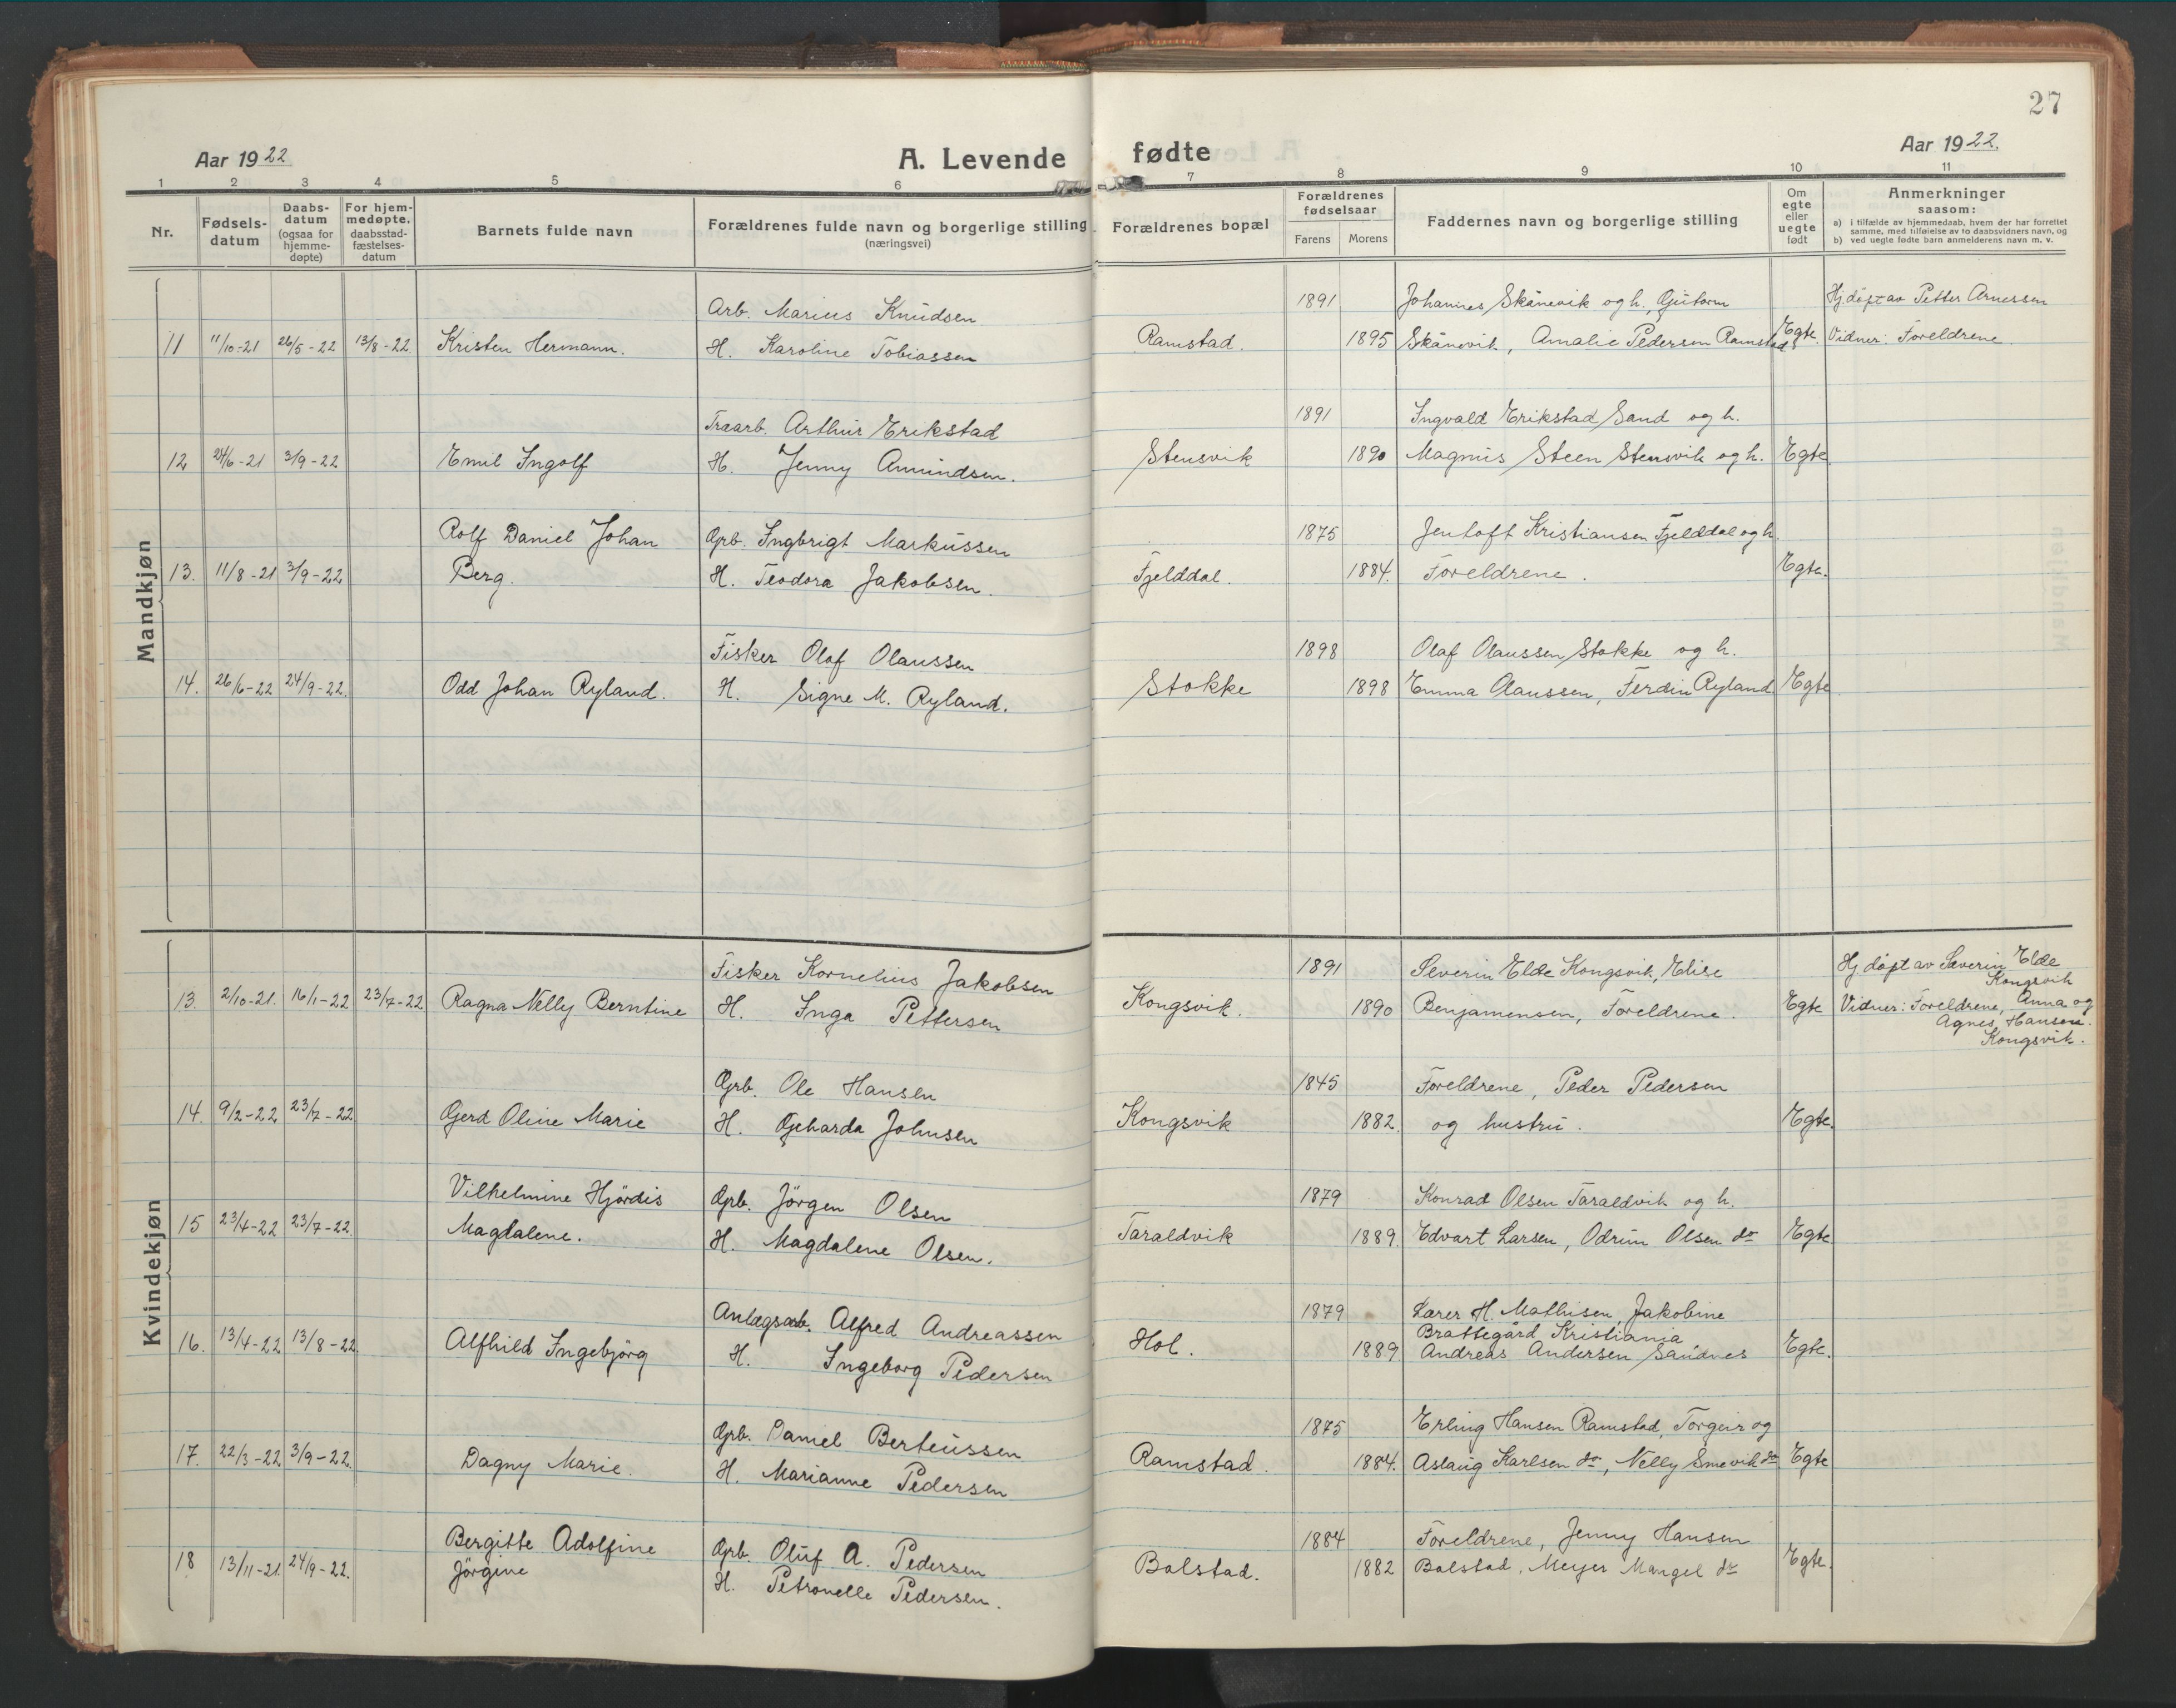 27
Aar 1922
A. Levende fødte
Aar 1922.
1 2 3 4 5 6 7 8 9 10 11
Nr.
Fødsels-
datum
Daabs-
datum
(ogsaa for
hjemme-
døpte)
For hjem-
medøpte,
daabsstad-
fæstelses-
datum
Barnets fulde navn
Forældrenes fulde navn og borgerlige stilling
(næringsvei)
Forældrenes bopæl
Forældrenes
fødselsaar
Farens Morens
Faddernes navn og borgerlige stilling
Om
egte
eller
uegte
født
Anmerkninger
saasom:
a) i tilfælde av hjemmedaab, hvem der har forrettet
samme, med tilføielse av to daabsvidners navn, og
b) ved uegte fødte barn anmelderens navn m. v.
Mandkjøn
Arb. Marius Knudsen 1891 Johannes Skånevik og h., Gjutorm Hj.døpt av Petter Arnessen
11 11/10-21 26/5-22 13/8-22 Kristen Hermann. H. Karoline Tobiassen Ramstad. 1895 Skånevik, Amalie Pedersen Ramstad Egte. Vidner: Foreldrene.
Træarb. Arthur Erikstad 1891 Ingvald Erikstad Sand og h.
12 24/6-21 3/9-22 Emil Ingolf H. Jenny Amundsen. Stensvik 1890 Magnus Steen Stensvik og h. Egte
Rolf Daniel Johan Gprb. Ingbrigt Markussen 1875 Jentoft Kristiansen Fjelddal og h.
13. 11/8-21 3/9-22 Berg. H. Teodora Jakobsen. Fjelddal. 1884. Foreldrene. Egte.
Fisker Olaf Olaussen 1898 Olaf Olaussen Stokke og h.
14. 26/6-22 24/9-22. Odd Johan Ryland. H. Signe M. Ryland. Stokke 1898 Emma Olaussen, Ferdin Ryland Egte
Kvindekjøn
Fisker Kornelius Jakobsen 1891 Severin Elde Kongsvik, Elise Hj døpt av Severin Elde
Kongsvik
13. 2/10-21. 16/1-22 23/7-22 Ragna Nelly Berntine H. Inga Pettersen Kongsvik. 1890 Benjamensen, Foreldrene. Egte Vidner: Foreldrene, Anna og
Agnes Hansen.
Kongsvik.
Gprb. Ole Hansen 1845 Foreldrene, Peder Pedersen
14. 9/2-22 23/7-22 Gjerd Oline Marie H. Gjeharda Johnsen Kongsvik 1882. og hustru. Egte.
Vilhelmine Hjördis Gprb. Jörgen Olsen 1879 Konrad Olsen Taraldvik og h.
15 23/4-22 23/7-22. Magdalene. H. Magdalene Olsen. Taraldvik 1889. Edvart Larsen, Odrun Olsen do Egte
Anlægsarb. Alfred Andreassen 1879 Lærer H. Mathisen, Jakobine
Brattegård Kristiania
16. 13/4-22 13/8-22. Alfhild Ingebjörg H. Ingeborg Pedersen Hol. 1889 Andreas Andersen Sandnes Egte.
Gprb. Daniel Berteussen 1875 Erling Hansen Ramstad, Torgeir og
17. 22/3-22 3/9-22. Dagny Marie. H. Marianne Pedersen Ramstad. 1884. Aslaug Karlsen do, Nelly Smevik do Egte
Bergitte Adolfine Gprb. Oluf A. Pedersen 1884 Foreldrene, Jenny Hansen
18 13/11-21. 24/9-22. Jörgine H. Petronelle Pedersen. Bolstad. 1882 Bolstad, Meyer Mangel do Egte.